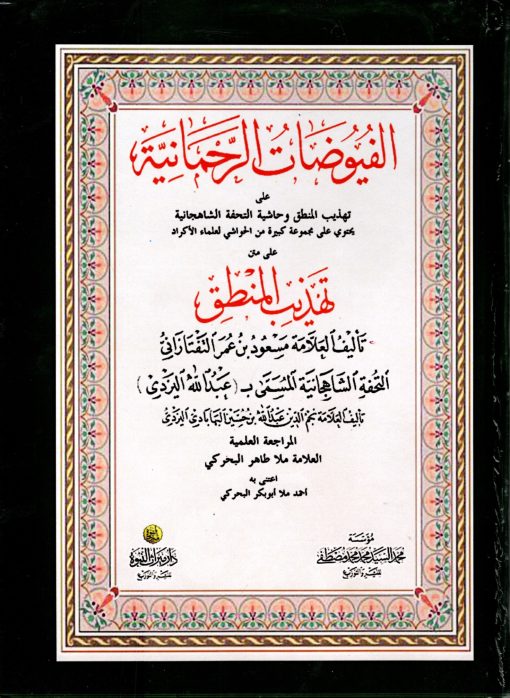 الفُيُوضَاتُ الرَّحْمَانِيَّة
على
تهذيب المنطق وحاشية التحفة الشاهجانية
يحتوي على مجموعة كبيرة من الحواشي لعلماء الأكراد
على متن
تهذيب المنطق
تأليف العلامة مسعود بن عمر التفتازاني
التحفة الشاهجانية المسمى بـ (عبد الله اليزدي)
تأليف العلامة نجم الدين عبد الله بن حسين البهابادي اليزدي
المراجعة العلمية
العلامة ملا طاهر البحركي
اعتنى به
أحمد ملا أبوبكر البحركي
مؤسسة
محمد السيد محمد محمد مصطفى
للنشر والتوزيع
دار ميراث النبوة
للنشر والتوزيع